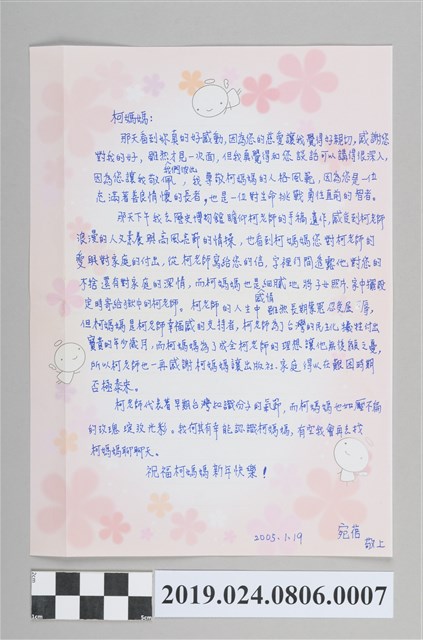 柯媽媽：
那天看到妳真的好感動，因為您的慈愛讓我覺得好親切，感謝您
對我的好，雖然才見一次面，但我真覺得和您談話可以講得很深入，
因為您讓我敬佩，我尊敬柯媽媽的人格風範，因為您是一位
充滿著善良情懷的長者，也是一位對生命挑戰勇往直前的智者。
那天下午我去歷史博物館瞻仰柯老師的手稿遺作，感受到柯老師
浪漫的人文素養與高風亮節的情操，也看到柯媽媽您對柯老師的
愛與對家庭的付出，從柯老師寫給您的信，字裡行間透露他對您的
不捨還有對家庭的深情，而柯媽媽也是細膩地將子女照片、家中擺設
定時寄給獄中的柯老師。柯老師的人生中雖然長期蒙冤
但柯媽媽是柯老師幸福感的支持者，柯老師為了台灣的民主化犧牲付出
寶貴的年少歲月，而柯媽媽為了成全柯老師的理想讓他無後顧之憂，
所以柯老師也一再感謝柯媽媽讓出版社、家庭得以在艱困時期
否極泰來。
柯老師代表著早期台灣知識份子的氣節，而柯媽媽也如壓不扁
的玫瑰綻放光彩。我何其有幸能認識柯媽媽，有空我會再去找
柯媽媽聊聊天。
祝福柯媽媽新年快樂！
2005.1.19
敬上
2cm
1cm
5cm
2019.024.0806.0007